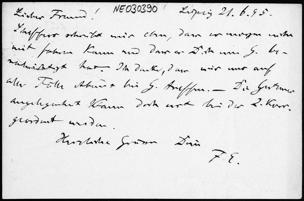 Lieber Freund! NE030390! Leipzig 21.6.95.
schreibt mir eben, dass er morgen nicht
mit fahren kann und dass er Dich von G. be-
nachrichtigt hat. Ich denke, dass wir uns auf
alle Fälle Abends bei G. treffen. — Die
angelegenheit kann doch erst bei der 2. Korr.
geordnet werden.
Herzliche Grüsse Dein
F. E.